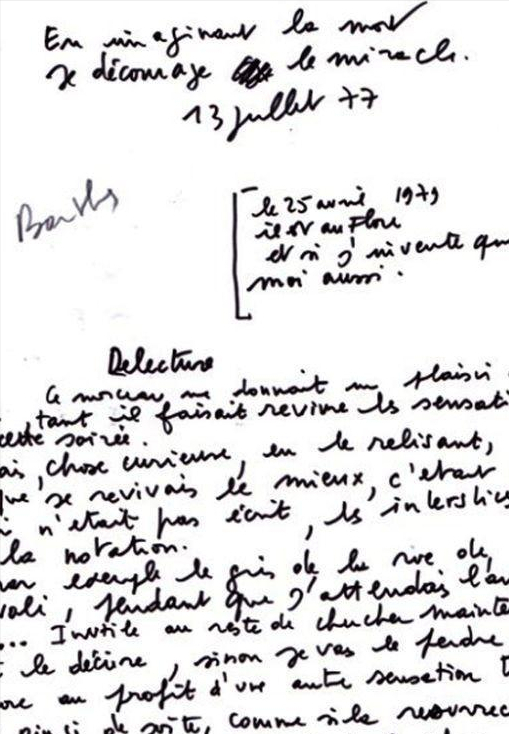 En imaginant la mort
je décourage le miracle.
13 juillet 77
Barthes
le 25 avril 1979
il est au Flore
et si j'invente que
moi aussi.
Relecture
Ce morceau me donnait un plaisir
tant il faisait revivre les sensati
cette soirée.
ais, chose curieuse, en le relisant,
que je revivais le mieux, c'était
i n'était pas écrit, les interstices
la notation.
par exemple le gris de la rue de
voli, pendant que j'attendais l'au
... Inutile au reste de chercher mainte
t le décrire, sinon je vais le perdre
ore au profit d'une autre sensation t
ainsi de suite, comme si la résurrec